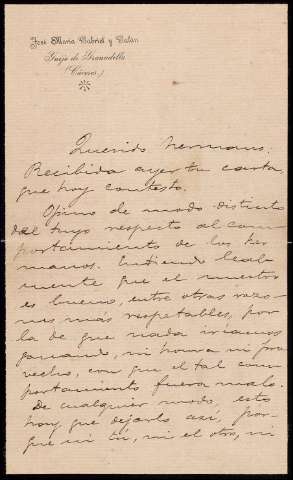 José María Gabriel y Galán
Guijo de Granadilla
(Cáceres)
Querido hermano:
Recibida ayer tu carta,
que hoy contesto.
Opino de modo distinto
del tuyo respecto al com-
portamiento de los her-
manos. Entiendo leal-
mente que el nuestro
es bueno, entre otras razo-
nes más respetables, por
la de que nada iríamos
ganando, ni honra ni pro
vecho, con que el tal com-
portamiento fuera malo.
De cualquier modo, esto
hay que dejarlo así, por-
que ni tú, ni el otro, ni